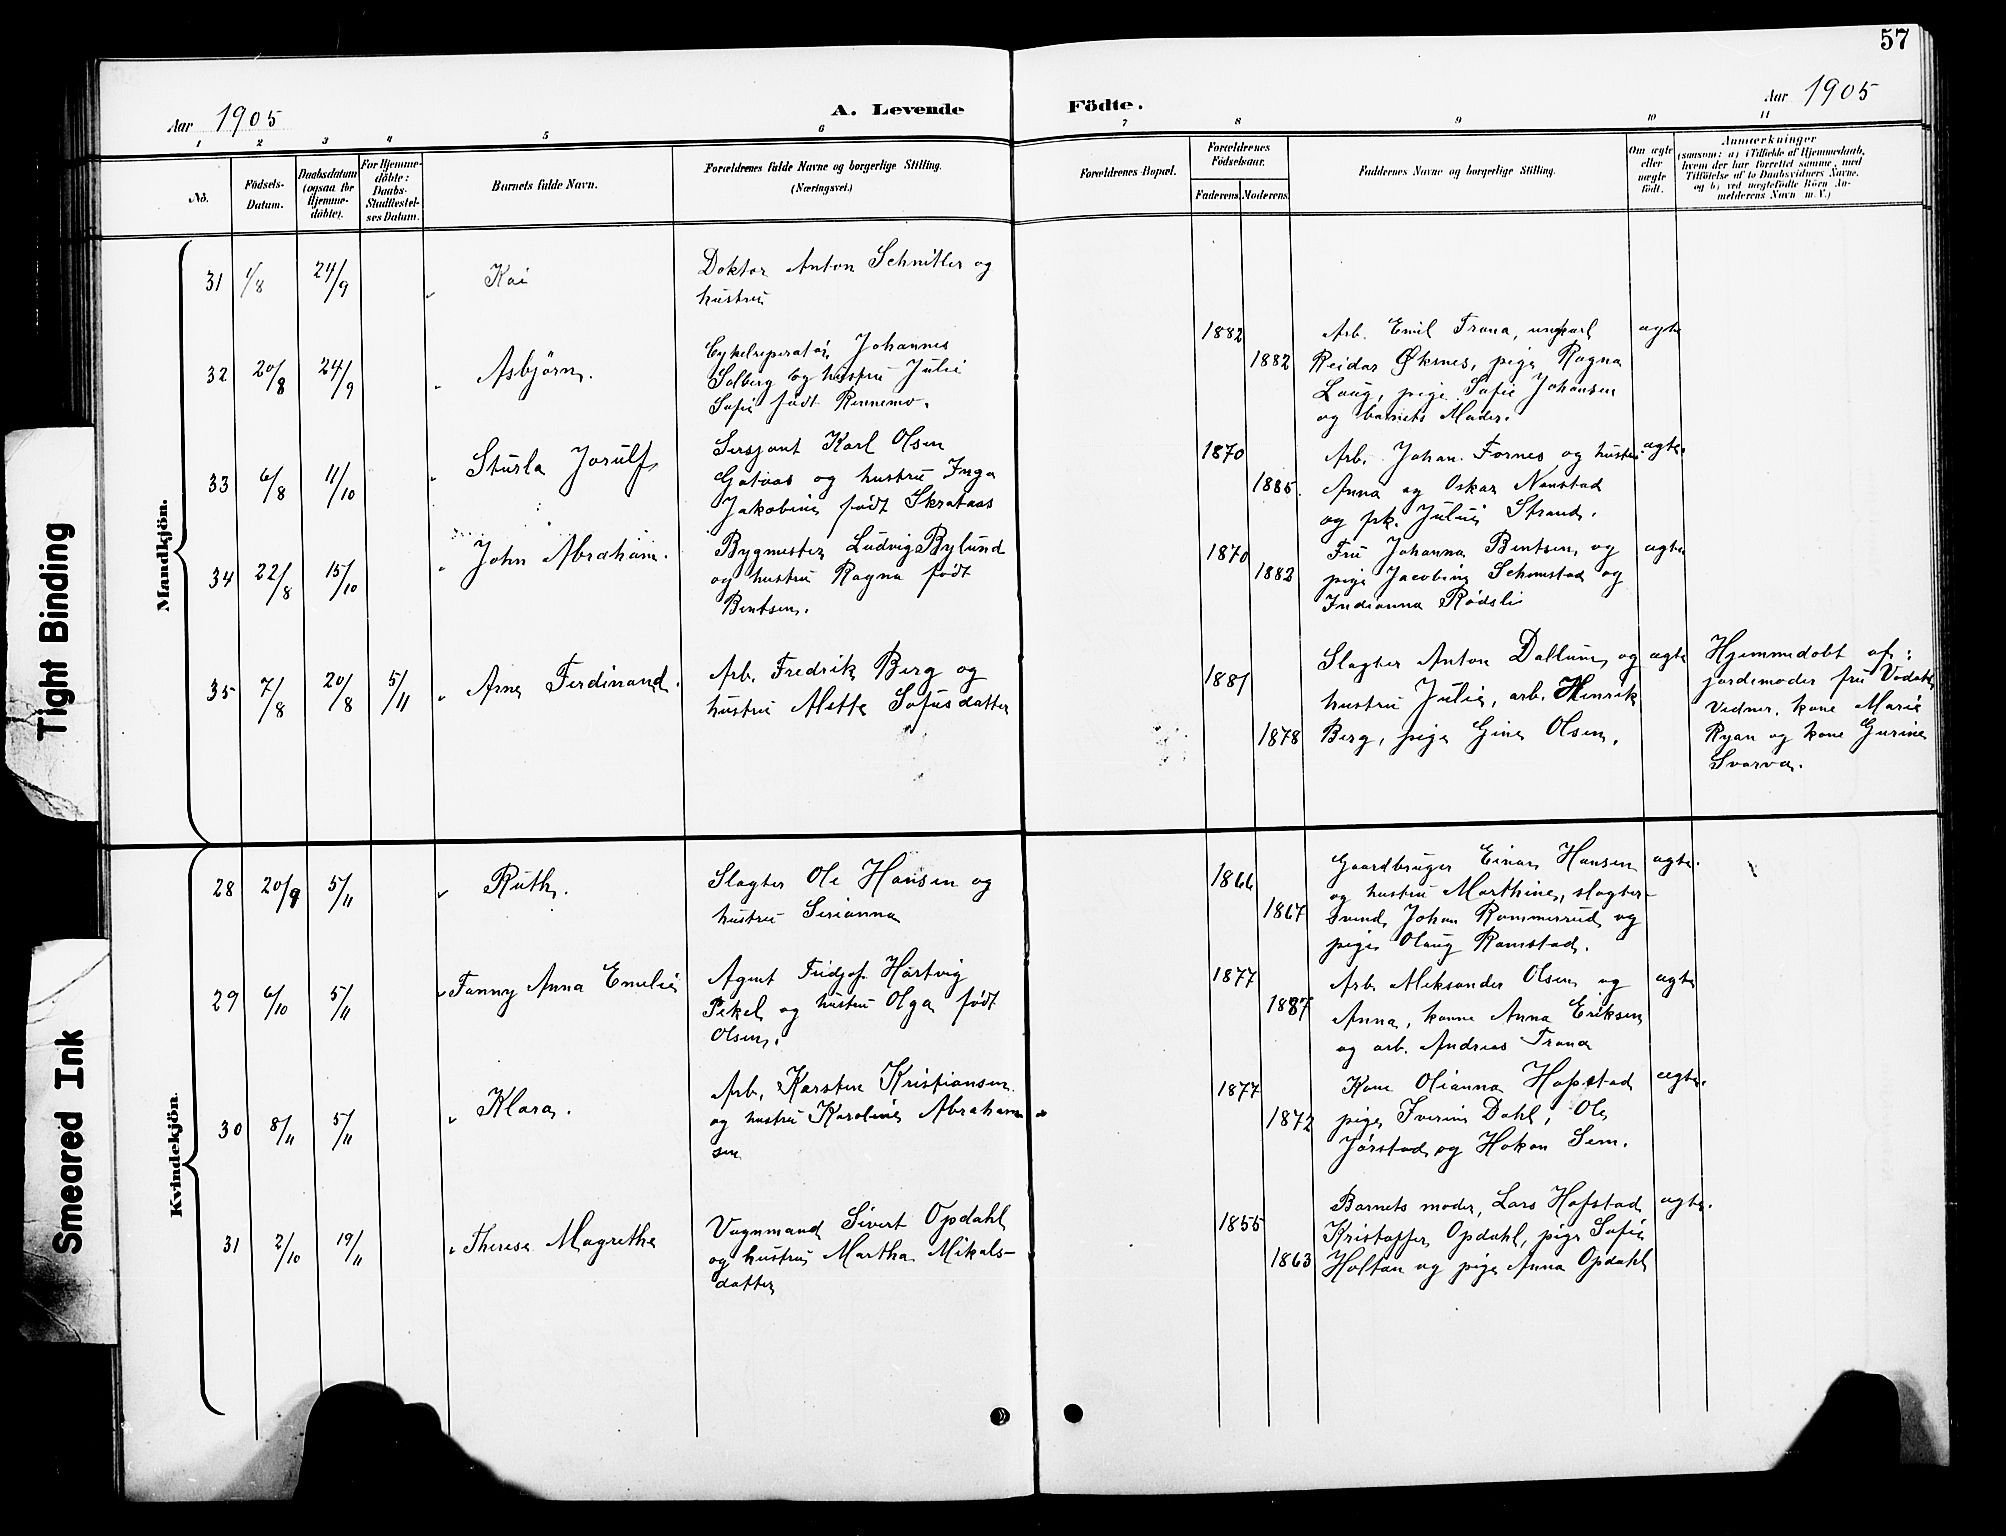 57
Aar 1905
A. Levende Födte.
Aar 1905
1 2 3 4 5 6 7 8 9 10 11
No.
Födsels-
Datum.
Daabsdatum
(ogsaa for
Hjemme-
döbte).
For Hjemme-
döbte:
Daabs-
Stadfæstel-
ses Datum.
Barnets fulde Navn.
Forældrenes fulde Navne og borgerlige Stilling.
(Næringsvei.)
Forældrenes Bopæl.
Forældrenes
Födselsaar.
Faderens
Moderens
Faddernes Navne og borgerlige Stilling.
Om ægte
eller
uægte
födt.
Anmærkninger
(saasom: a) i Tilfælde af Hjemmedaab,
hvem der har forrettet samme, med
Tilföielse af to Daabsvidners Navne,
og b) ved uægtefödte Börn An-
melderens Navn m. V.)
Mandkjön.
31 1/8 24/9 Kai
Doktor Anton Schnitler og
hustru
32 20/8 24/9 Asbjörn.
Cykelreperatör Johannes
Solberg og hustru Julie
Sofie født Rennemo.
1882
1882
Arb. Emil Trana, ungkarl
Reidar Øksnes, pige Ragna
Laug, pige Sofie Johansen
og barnets Moder.
ægte
33 6/8 11/10 Sturla Jorulf
Sersjant Karl Olsen
Gotaas og hustru Inga
Jakobine født Skrataas
1870
1885.
Arb. Johan Fornes og hustru
Anna og Oskar Naustad
og frk. Julie Strand.
ægte.
34 22/8 15/10 John Abraham.
Bygmester Ludvig Bylund
og hustru Ragna født
Bentsen.
1870
1882
Fru Johanna Bentsen og
pige Jacobine Schimstad og
Indianna Rödsli
ægte
35 7/8 20/8 5/11 Arne Ferdinand.
Arb. Fredrik Berg og
hustru Mette Sofusdatter
1881
1878
Slagter Anton Dallum og
hustru Julie, arb. Henrik
Berg, pige Gine Olsen.
ægte
Hjemmedøbt af:
jordemoder fru Vodahl
Vidner, kone Marie
Ryan og kone Gurine
Svarva.
Kvindekjön.
28 20/9 5/11 Ruth.
Slagter Ole Hansen og
hustru Serianna
1866
1867
Gaardbruger Einar Hansen
og hustru Marthine, slagter-
svend Johan Rommerud og
pige Olaug Ramstad.
ægte.
29 6/10 5/11 Fanny Anna Emelie
Agent Fridjof Hartvig
Pekel og hustru Olga født
Olsen.
1877
1887
Arb Aleksander Olsen og
Anna, konne Anna Eriksen
og arb. Andreas Trana
ægte
30 8/11 5/11 Klara.
Arb. Karsten Kristiansen
og hustru Karoline Abraham
sen
1877
1872
Kone Olianna Hofstad
pige Iverine Dahl, Ole
Jørstad og Hakon Sem.
ægte.
31 2/10 19/11 Therese Magrethe
Vognmand Sivert Opdahl
og hustru Martha Mikals-
datter
1855
1863
Barnets moder, Lars Hofstad
Kristoffer Opdahl, pige Sofie
Holtan og pige Anna Opdahl
ægte.
Tight Binding
Smeared Ink